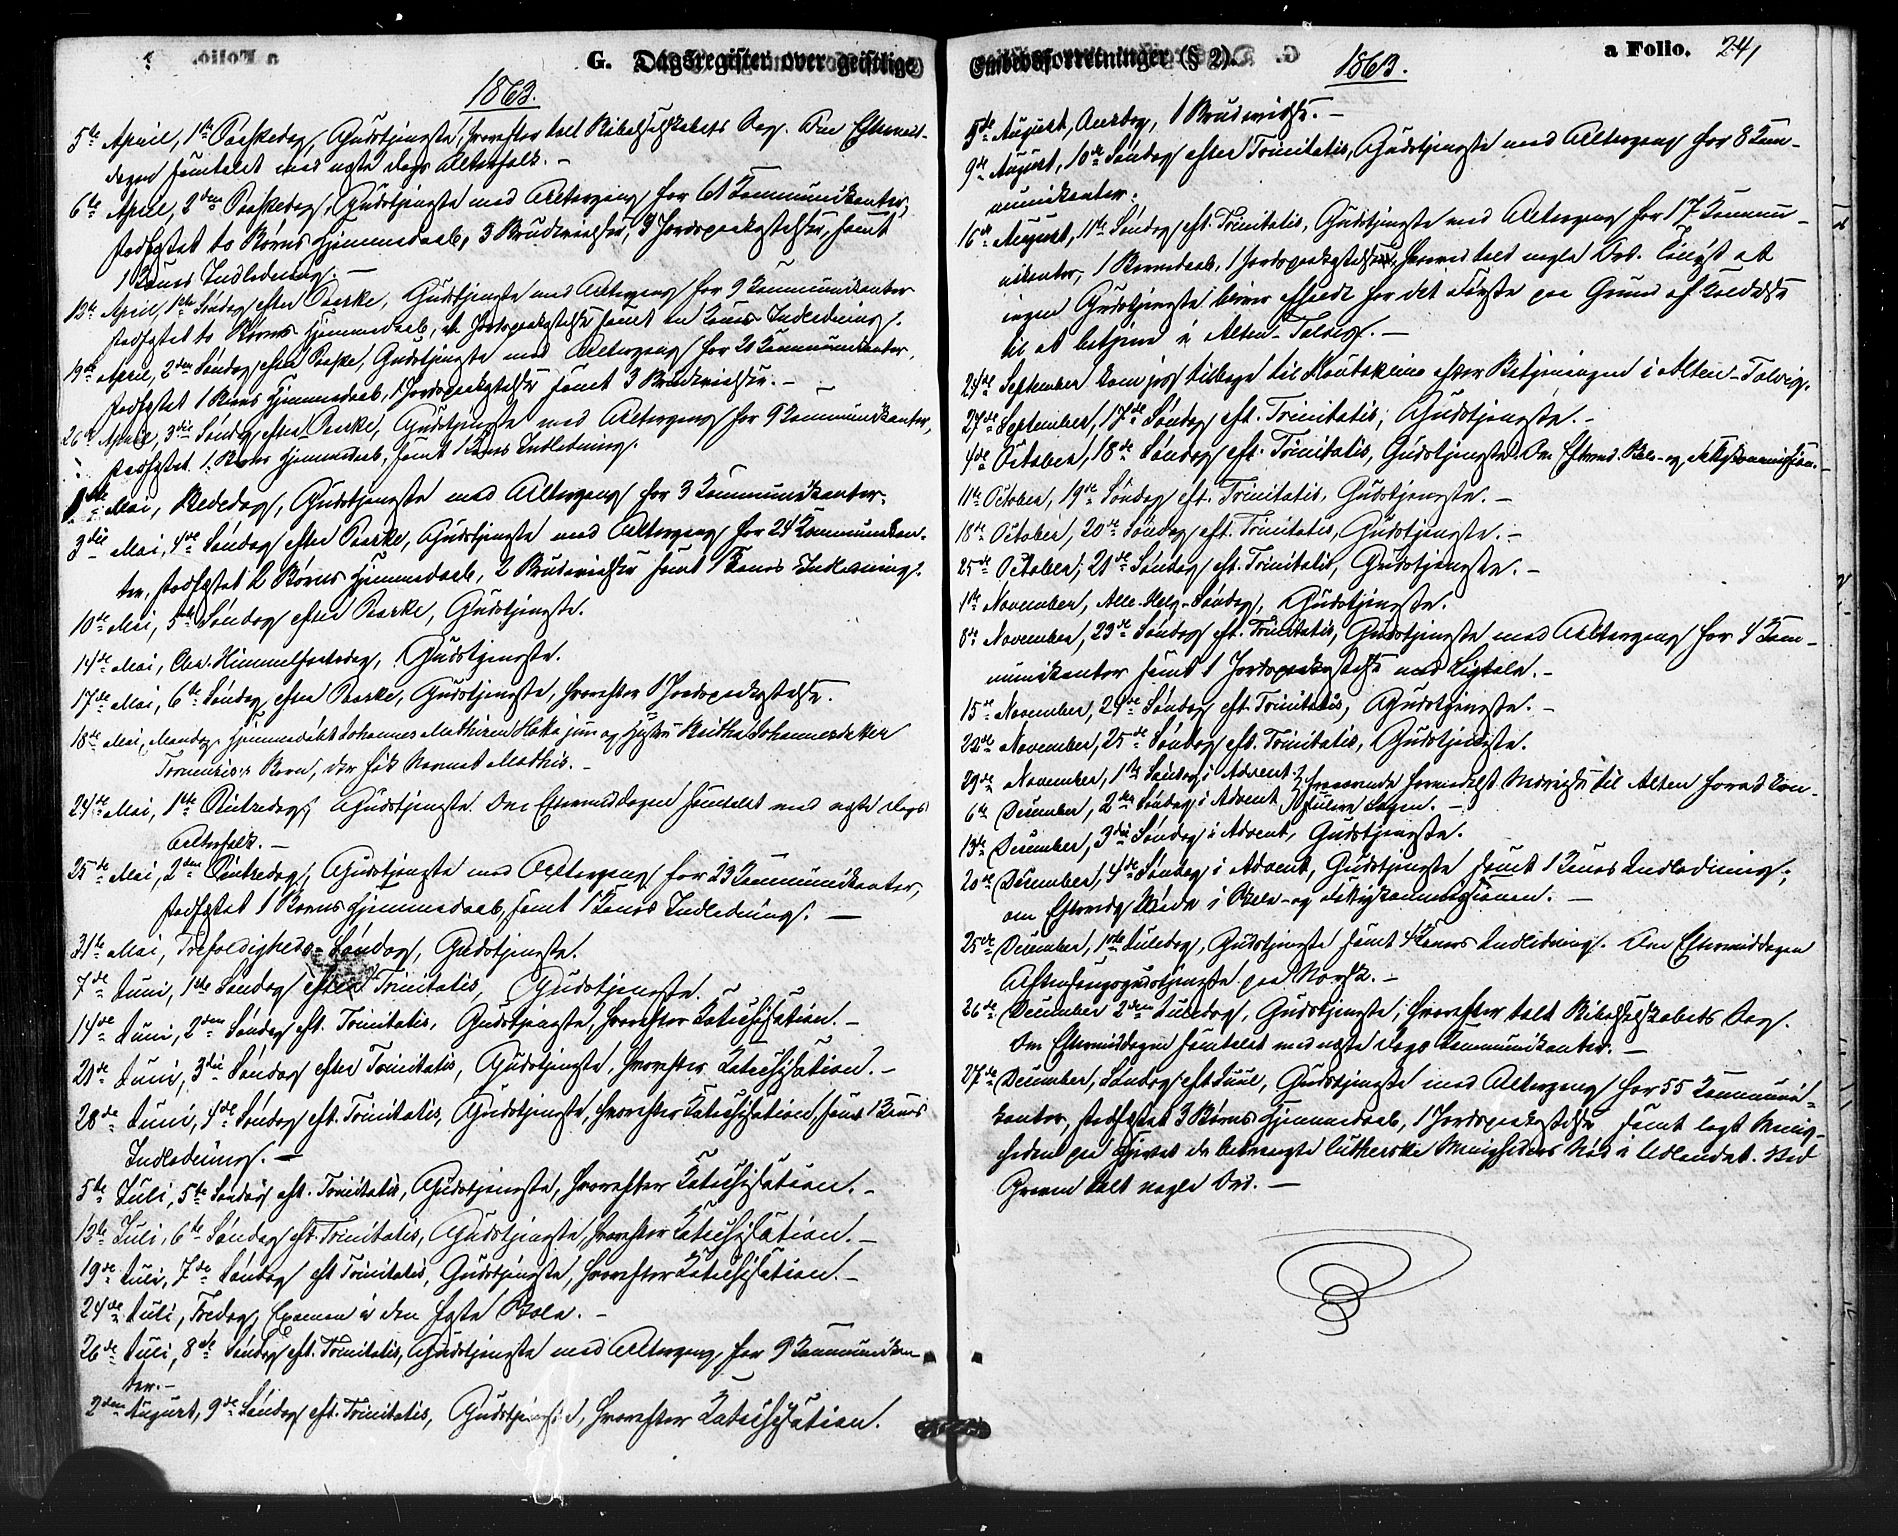 G. Dagsregister over geistlige
1863.
5te April, 1ste Paaskedag, Gudstjeneste, hvorefter holdt Bibelselskabets Dag. Om Eftermid-
dagen Samtalet med næste Dags Altersfolk. –
6te April, 2den Paaskedag, Gudstjeneste med Altergang for 61 Kommunikanter,
stadfæstet to Børns Hjemmedaab, 3 Brudevielser, 3 Jordspaakastelser, samt
1 Kones Indledning. –
12te April, 1ste Søndag efter Paaske, Gudstjeneste med Altergang for 9 Kommunikanter
stadfæstet to Børns Hjemmedaab, Jordspaakastelse samt en Kones Indledning.
19de April, 2den Søndag efter Paaske, Gudstjeneste med Altergang for 20 Kommunikanter,
stadfæstet 1 Barns Hjemmedaab, 1 Jordspaakastelse samt 3 Brudevielser. –
26de April, 3die Søndag efter Paaske, Gudstjeneste med Altergang for 9 Kommunikanter,
stadfæstet 1 Barns Hjemmedaab, samt 1 Kones Indledning.
1ste Mai, Bededag, Gudstjeneste med Altergang for 3 Kommunikanter.
3die Mai, 4de Søndag efter Paaske, Gudstjeneste med Altergang for 24 Kommunikan-
ter, stadfæstet 2 Børns Hjemmedaab, 2 Brudevielser samt 1 Kones Indledning.
10de Mai, 5te Søndag efter Paaske, Gudstjeneste.
14de Mai, Chr. Himmelfartsdag, Gudstjeneste.
17de Mai, 6te Søndag efter Paaske, Gudstjeneste, hvorefter 1 Jordspaakastelse.
18de Mai, Mandag, hjemmedøbt Johannes Mathisen Hætta jun. og Hustru Beritha Johannesdatter
Barn, der fik Navnet Mathis. –
24de Mai, 1ste Pintsedag, Gudstjeneste. Om Eftermiddagen samtalet med næste Dags
Altersfolk. –
25de Mai, 2den Pintsedag, Gudstjeneste med Altergang for 23 Kommunikanter,
stadfæstet 1 Barns Hjemmedaab, samt 1 Kones Indledning. –
31te Mai, Trefoldigheds-Søndag, Gudstjeneste.
7de Juni, 1ste Søndag efter Trinitatis, Gudstjeneste.
14de Juni, 2den Søndag eft. Trinitatis, Gudstjeneste, hvorefter Katechisation. –
21de Juni, 3die Søndag efter Trinitatis, Gudstjeneste, hvorefter Katechisation. –
28de Juni, 4de Søndag eft. Trinitatis, Gudstjeneste, hvorefter Katechisation, samt 1 Kones
Indledning. –
5te Juli, 5te Søndag eft. Trinitatis, Gudstjeneste, hvorefter Katechisation. –
12te Juli, 6te Søndag eft. Trinitatis, Gudstjeneste, hvorefter Katechisation. –
19de Juli, 7de Søndag eft Trinitatis, Gudstjeneste, hvorefter Katechisation. –
24de Juli, Fredag, Examen i den faste Skole. –
26de Juli, 8de Søndag eft. Trinitatis, Gudstjeneste med Altergang for 9 Kommunikan-
ter. –
2den August, 9de Søndag eft. Trinitatis, Gudstjeneste, hvorefter Katechisation.
Embedsforretninger (§ 2).
a Folio. 241
1863.
5te August, Onsdag, 1 Brudevielse. –
9de August, 10de Søndag efter Trinitatis, Gudstjeneste med Altergang for 8 Kom-
munikanter.
16de August, 11te Søndag eft. Trinitatis, Gudstjeneste med Altergang for 17 Kommu-
nikanter, 1 Barnedaab, 1 Jordspaakastelse, hvorved holdt nogle Ord. Lyst at
ingen Gudstjeneste bliver afholdt for det Første paa Grund af Kaldelse
til at betjene i Alten-Talvig. –
24de September kom jeg tilbage til Koutokeino efter Betjeningen i Alten-Talvig.
27de September, 17de Søndag eft. Trinitatis, Gudstjeneste. –
4de October, 18de Søndag eft. Trinitatis, Gudstjeneste. Om Efterm. Skole- og Fattigkommission. –
11te October, 19de Søndag eft. Trinitatis, Gudstjeneste. –
18de October, 20de Søndag eft. Trinitatis, Gudstjeneste. –
25de October, 21de Søndag eft. Trinitatis, Gudstjeneste. –
1ste November, Alle-Helg.-Søndag, Gudstjeneste.
8de November, 23de Søndag eft. Trinitatis, Gudstjeneste med Altergang for 4 Kom-
munikanter samt 1 Jordspaakastelse med Ligtale. –
15de November, 24de Søndag eft. Trinitatis, Gudstjeneste. –
22de November, 25de Søndag eft. Trinitatis, Gudstjeneste.
29de November, 1ste Søndag i Advent } fraværende formedelst Udreise til Alten for at kon-
6te December, 2den Søndag i Advent } sulere Lægen. –
13de December, 3die Søndag i Advent, Gudstjeneste.
20de December, 4de Søndag i Advent, Gudstjeneste samt 1 Kones Indledning;
om Efterm. Møde i Skole- og Fattigkommissionen. –
25de December, 1ste Juledag, Gudstjeneste samt 4 Koners Indledning. Om Eftermiddagen
Aftensangsgudstjeneste paa Norsk. –
26de December 2den Juledag, Gudstjeneste, hvorefter holdt Bibelselskabets Dag.
Om Eftermiddagen samtalet med næste Dags Kommunikanter. –
27de December, Søndag eft Juul, Gudstjeneste med Altergang for 55 Kommuni-
kanter, stadfæstet 3 Børns Hjemmedaab, 1 Jordspaakastelse samt lagt Menig-
heden paa Hjertet de betrængte lutherske Menigheders Nød i Udlandet. Ved
Graven holdt nogle Ord. –